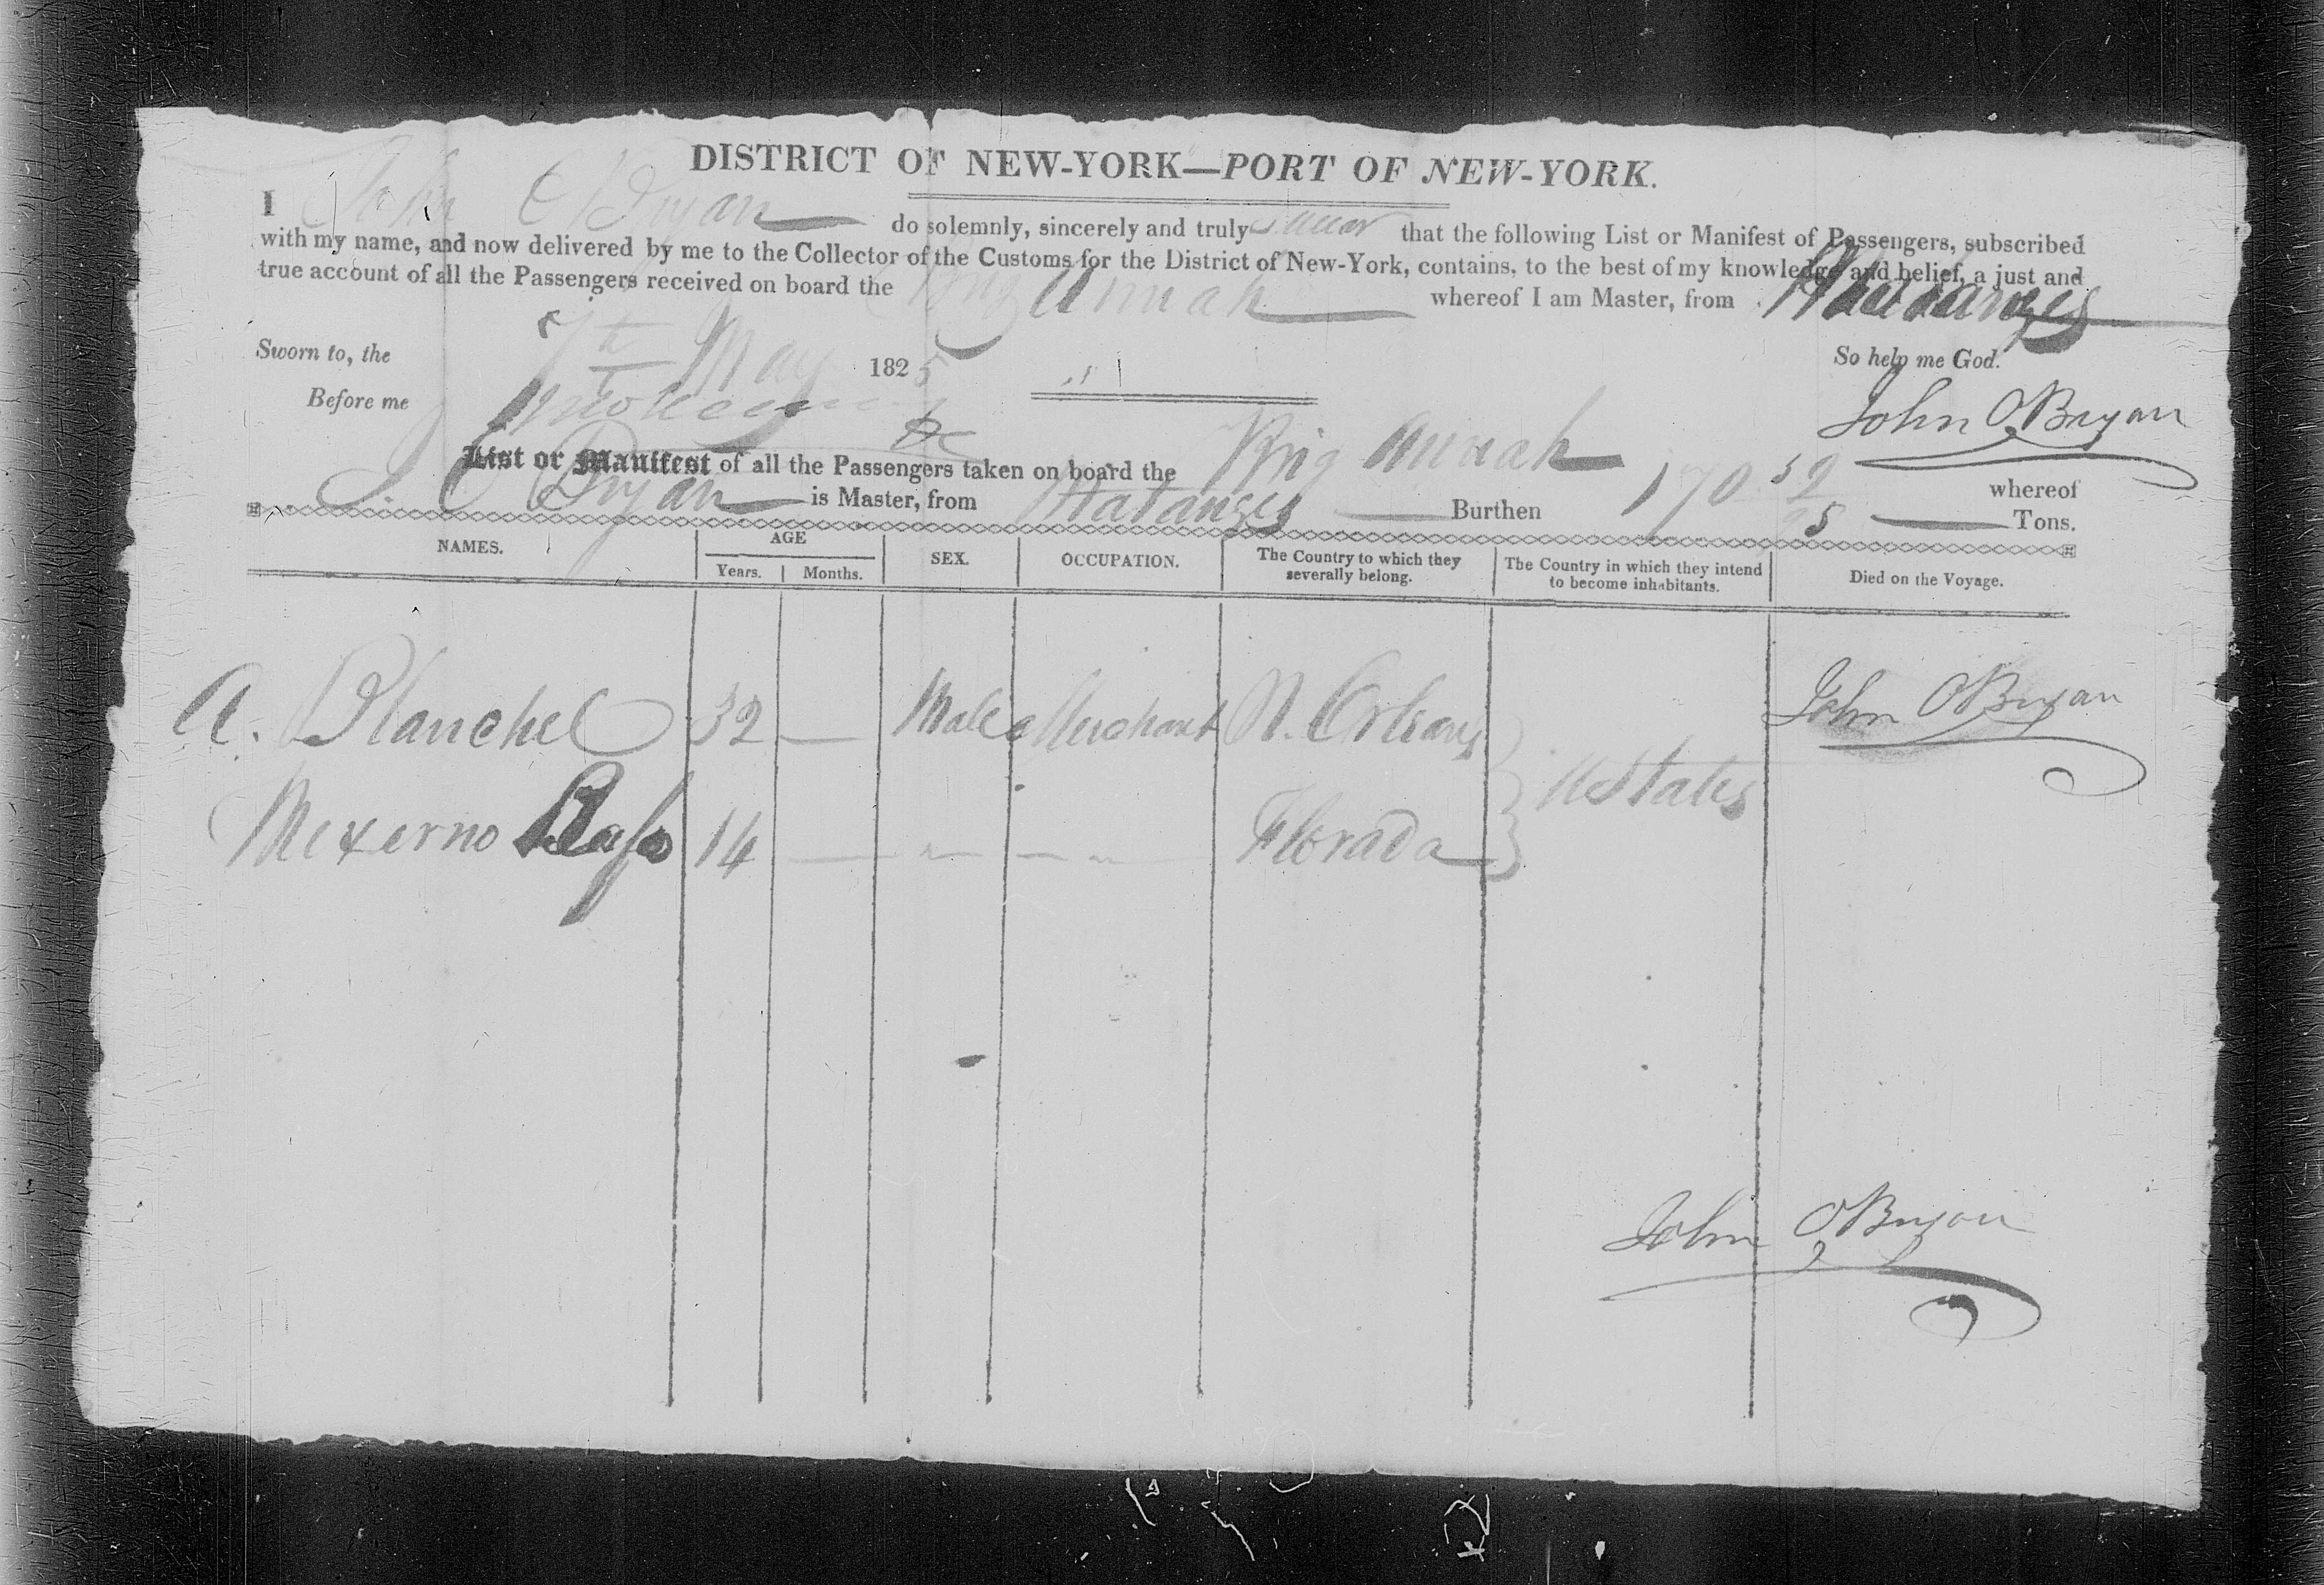 DISTRICT OF NEW-YORK—PORT OF NEW-YORK.
I John O Bryan do solemnly, sincerely and truly swear that the following List or Manifest of Passengers, subscribed
with my name, and now delivered by me to the Collector of the Customs for the District of New-York, contains, to the best of my knowledge and belief, a just and
true account of all the Passengers received on board the Brig Annah whereof I am Master, from Matanzes
Sworn to, the 7th May 1825 So help me God.
Before me John OBryan
List or Manifest of all the Passengers taken on board the Brig Annah whereof
J. O Bryan is Master, from Matanzes Burthen 170 52 95 Tons.
NAMES. AGE SEX. OCCUPATION. The Country to which they severally belong. The Country in which they intend to become inhabitants. Died on the Voyage.
Years. Months.
A. Blanchel 32 — Male Merchant N. Orleans John OBryan
U States
14 — " — — " — Florada
John OBryan